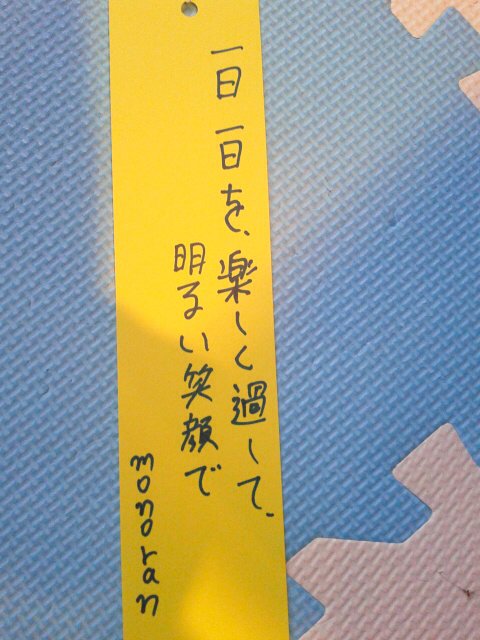 一日一日を、楽しく過して、
明るい笑顔で
monoran